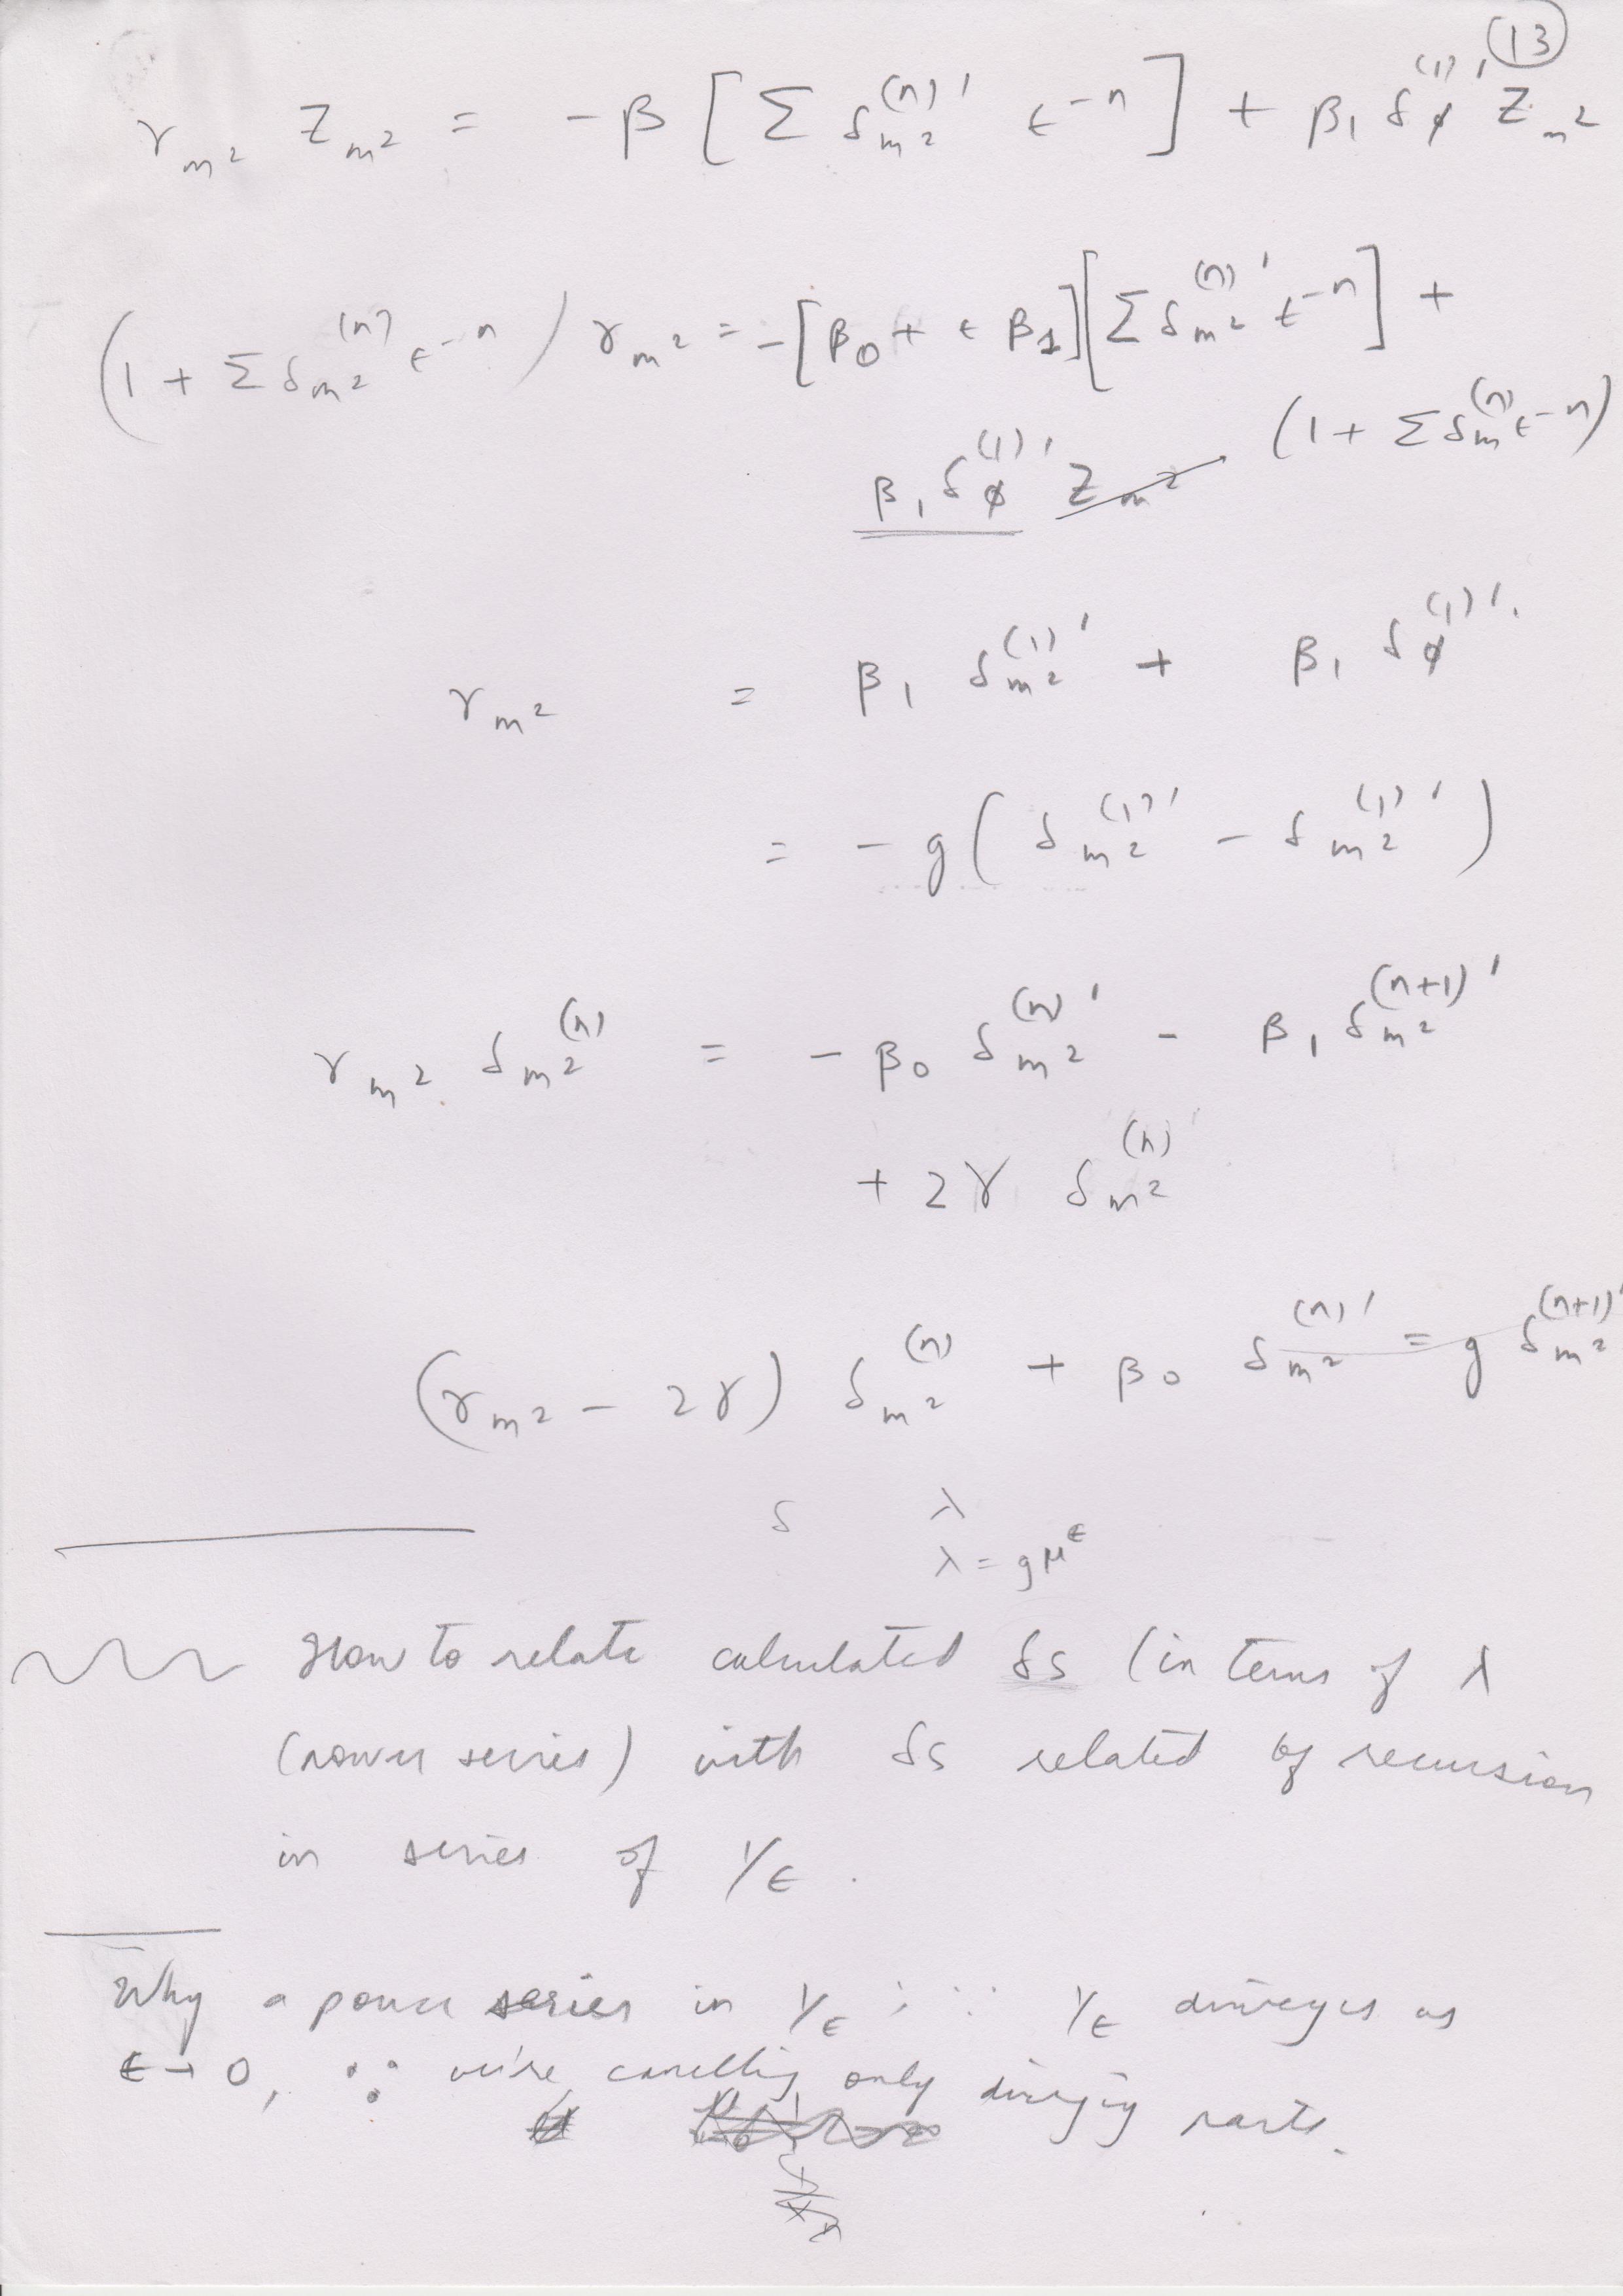 (13)
γ_{m²} Z_{m²} = -β [ Σ δ_{m²}^{(n)'} ε^{-n} ] + β₁ δ_φ^{(1)'} Z_{m²}
( 1 + Σ δ_{m²}^{(n)} ε^{-n} ) γ_{m²} = -[ β₀ + ε β₁ ] [ Σ δ_{m²}^{(n)'} ε^{-n} ] +
β₁ δ_φ^{(1)'} Z_{m²} (1 + Σ δ_m^{(n)} ε^{-n})
γ_{m²} = β₁ δ_{m²}^{(1)'} + β₁ δ_φ^{(1)'}.
= -g ( δ_{m²}^{(1)'} - δ_{m²}^{(1)'} )
γ_{m²} δ_{m²}^{(n)} = -β₀ δ_{m²}^{(n)'} - β₁ δ_{m²}^{(n+1)'}
+ 2γ δ_{m²}^{(n)}
(γ_{m²} - 2γ) δ_{m²}^{(n)} + β₀ δ_{m²}^{(n)'} = g δ_{m²}^{(n+1)'}
δ λ
λ = gμ^ε
How to relate calculated δs (in terms of λ
(power series) with δs related by recursion
in series of 1/ε.
Why a power series in 1/ε ; ∵ 1/ε diverges as
ε → 0, ∴ we're cancelling only diverging parts.